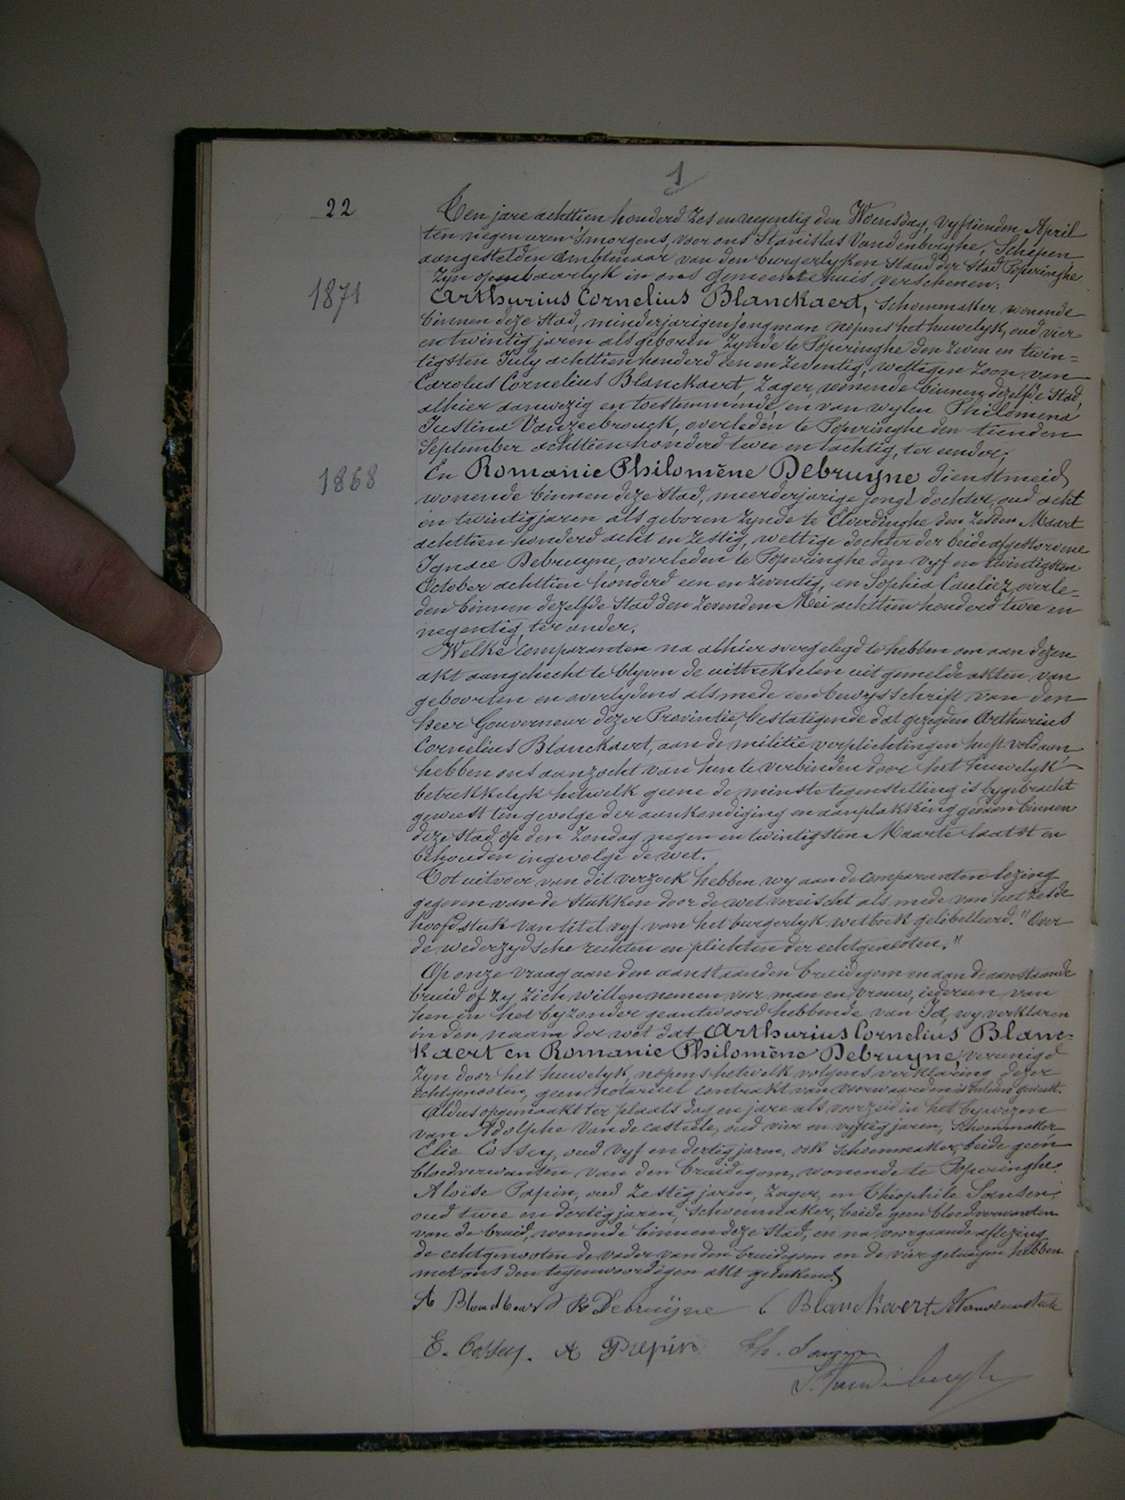 1
22
Ten jare achttien honderd zes en negentig den Woensdag, vyftienden April
ten negen uren 's morgens, voor ons Stanislas Vandenberghe, Schepen
aangestelden Ambtenaar van den burgerlyken stand der Stad Poperinghe
zyn openbaarlyk in ons gemeentehuis verschenen:
1871
Arthurius Cornelius Blanckaert, schoenmaker wonende
binnen deze stad, minderjarigen jongman nopens het huwelyk, oud vier
en twintig jaren als geboren zynde te Poperinghe den zeven en twin=
tigsten July achttien honderd een en zeventig, wettigen zoon van
Carolus Cornelius Blanckaert, zager, wonende binnen dezelfde stad,
alhier aanwezig en toestemmende, en van wylen Philomena
Justina Vanzeebrouck, overleden te Poperinghe den tienden
September achttien honderd twee en tachtig, ter ander;
1868
En Romanie Philomène Debruyne dienstmeid,
wonende binnen deze stad, meerderjarige jonge dochter, oud acht
en twintig jaren als geboren zynde te Elverdinghe den zesden Maart
achttien honderd acht en zestig, wettige dochter der beide afgestorvene
Ignace Debruyne, overleden te Poperinghe den vyf en twintigsten
October achttien honderd een en zeventig, en Sophia Cauliez, overle=
den binnen dezelfde stad den Mei achttien honderd twee en
negentig, ter ander.
Welke comparanten na alhier overgelegd te hebben om aan dezen
akt aangehecht te blyven de uittrekselen uit gemelde akten van
geboorten en overlydens als mede een bewysschrift van den
heer Gouverneur dezer Provintie, bestatigende dat gezegden Arthurius
Cornelius Blanckaert, aan de militie verplichtingen heeft voldaan
hebben ons aanzocht van hun te verbinden door het huwelyk
betrekkelyk hetwelk geene de minste tegenstelling is bygebracht
geweest ten gevolge der aankondiging en aanplakking gedaan binnen
deze stad op den Zondag negen en twintigsten Maarte laatst en
behouden ingevolge de wet.
Tot uitvoer van dit verzoek hebben wy aan de comparanten lezing
gegeven van de stukken door de wet vereischt als mede van het zesde
hoofdstuk van titel vyf van het burgerlyk wetboek gelibelleerd. "Over
de wederzydsche rechten en plichten der echtgenooten."
Op onze vraag aan den aanstaanden bruidegom en aan de aanstaande
bruid of zy zich willen nemen voor man en vrouw, iedereen van
hen in het byzonder geantwoord hebbende van Ja, wy verklaren
in den naam der wet dat Arthurius Cornelius Blanc=
kaert en Romanie Philomène Debruyne, vereenigd
zyn door het huwelyk, nopens hetwelk volgens verklaring dezer
echtgenooten, geen notarieel contrakt van voorwaarden is
Aldus opgemaakt ter plaats dag en jare als voorzeid in het bywezen
van Adolphe Vandecasteele, oud vier en vyftig jaren, schoenmaker
Elie Cossey, oud vyf en dertig jaren, ook schoenmaker, beide geen
bloedverwanten van den bruidegom, wonende te Poperinghe.
Aloïse Papin, oud zestig jaren, zager, en Théophile Sansen,
oud twee en dertig jaren, schoenmaker, beide geen bloedverwanten
van de bruid, wonende binnen deze stad, en na voorgaande aflezing
de echtgenooten de vader van den bruidegom en de vier getuigen hebben
met ons den tegenwoordigen akt geteekend
A Blanckaert R Debruÿne C Blanckaert
E. Cossey. A Th. Sansen
S. Vandenberghe